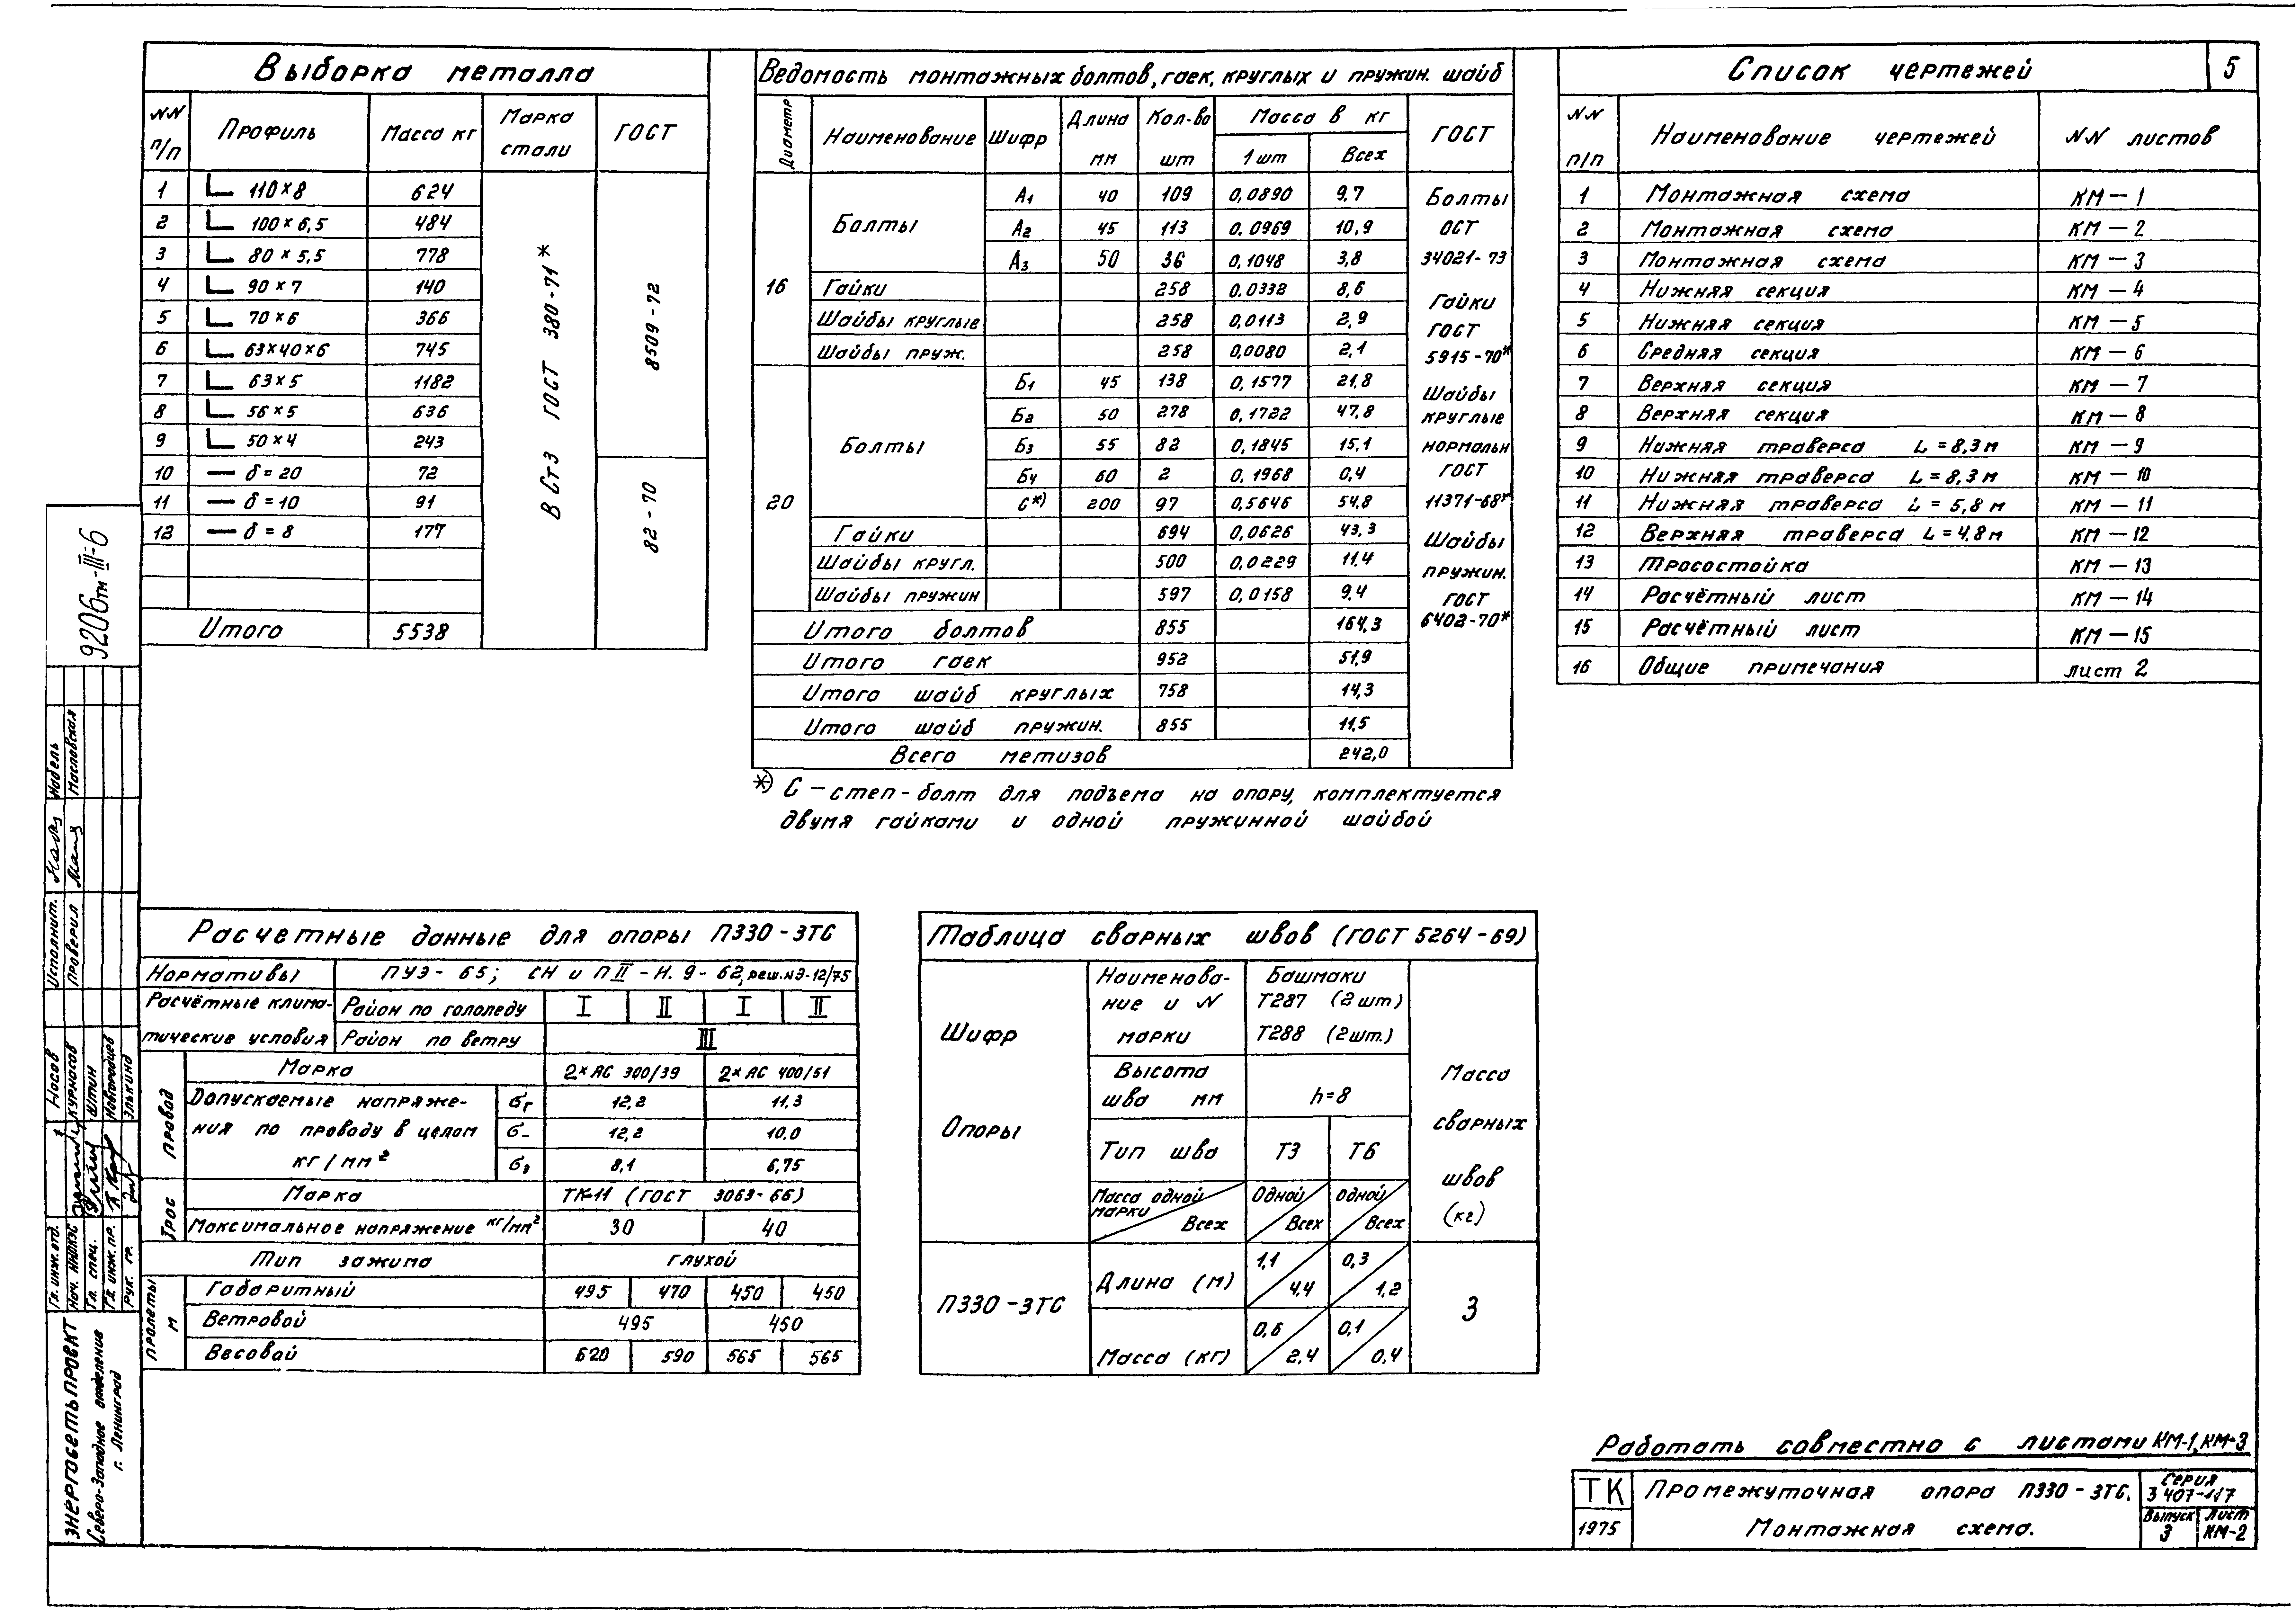 Выборка металла
NN п/п Профиль Масса кг Марка стали ГОСТ
1 L 110×8 624
2 L 100×6,5 484
3 L 80×5,5 778
4 L 90×7 140
5 L 70×6 366
6 L 63×40×6 745
7 L 63×5 1182
8 L 56×5 636
9 L 50×4 243
10 — δ=20 72
11 — δ=10 91
12 — δ=8 177
Итого 5538
В Ст3 ГОСТ 380-71*
8509-72
82-70
Ведомость монтажных болтов, гаек, круглых и пружин. шайб
Диаметр Наименование Шифр Длина мм Кол-во шт Масса в кг 1 шт Всех ГОСТ
16
Болты А1 40 109 0,0890 9,7
А2 45 113 0,0969 10,9
А3 50 36 0,1048 3,8
Гайки 258 0.0332 8,6
Шайбы круглые 258 0,0113 2,9
Шайбы пруж. 258 0,0080 2,1
20
Болты Б1 45 138 0,1577 21,8
Б2 50 278 0,1722 47,8
Б3 55 82 0,1845 15,1
Б4 60 2 0,1968 0,4
С*) 200 97 0,5646 54,8
Гайки 694 0,0626 43,3
Шайбы кругл. 500 0,0229 11,4
Шайбы пружин 597 0,0158 9,4
Итого болтов 855 164,3
Итого гаек 952 51,9
Итого шайб круглых 758 14,3
Итого шайб пружин. 855 11,5
Всего метизов 242,0
Болты
ОСТ
34021-73
Гайки
ГОСТ
5915-70*
Шайбы
круглые
нормальн
ГОСТ
11371-68*
Шайбы
пружин.
ГОСТ
6402-70*
*) С — степ-болт для подъема на опору, комплектуется
двумя гайками и одной пружинной шайбой
Список чертежей 5
NN п/п Наименование чертежей NN листов
1 Монтажная схема КМ—1
2 Монтажная схема КМ—2
3 Монтажная схема КМ—3
4 Нижняя секция КМ—4
5 Нижняя секция КМ—5
6 Средняя секция КМ—6
7 Верхняя секция КМ—7
8 Верхняя секция КМ—8
9 Нижняя траверса L=8,3м КМ—9
10 Нижняя траверса L=8,3м КМ—10
11 Нижняя траверса L=5,8м КМ—11
12 Верхняя траверса L=4,8м КМ—12
13 Тросостойка КМ—13
14 Расчётный лист КМ—14
15 Расчётный лист КМ—15
16 Общие примечания лист 2
Расчетные данные для опоры П330-3тС
Нормативы ПУЭ-65; СН и П II-И.9-62, реш.№Э-12/75
Расчётные клима-
тические условия
Район по гололеду I II I II
Район по ветру III
Провод
Марка 2×АС 300/39 2×АС 400/51
Допускаемые напряже-
ния по проводу в целом
кг/мм²
σг 12,2 11,3
σ- 12,2 10,0
σэ 8,1 6,75
Трос
Марка ТК-11 (ГОСТ 3063-66)
Максимальное напряжение кг/мм² 30 40
Тип зажима глухой
Пролеты м
Габаритный 495 470 450 450
Ветровой 495 450
Весовой 620 590 565 565
Таблица сварных швов (ГОСТ 5264-69)
Шифр
Опоры
Наименова-
ние и N
марки
Башмаки
Т287 (2шт)
Т288 (2шт.)
Высота
шва мм h=8
Тип шва Т3 Т6
Масса одной марки Всех Одной Всех Одной Всех
Масса
сварных
швов
(кг)
П330-3тС
Длина (м) 1,1 4,4 0,3 1,2
Масса (кг) 0,6 2,4 0,1 0,4
3
Работать совместно с листами КМ-1, КМ-3
ТК Промежуточная опора П330-3тС. Серия 3 407-117
1975 Монтажная схема. Выпуск 3 Лист КМ-2
9206тм-III-6
Исполнит. Набель
Проверил Масловская
Гл. инж. отд. Носов
Нач. Курносов
Гл. спец. Штин
Гл. инж. пр. Новгородцев
Рук. гр. Элькинд
Энергосетьпроект
Северо-Западное отделение
г. Ленинград